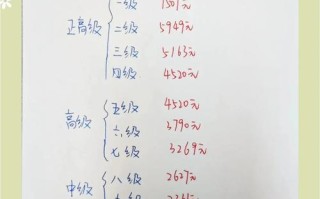 一级 7501元
正高级 二级 5949元
三级 5163元
四级 4520元
五级 4520元
高级 六级 3790元
七级 3269元
中级 八级 2627元